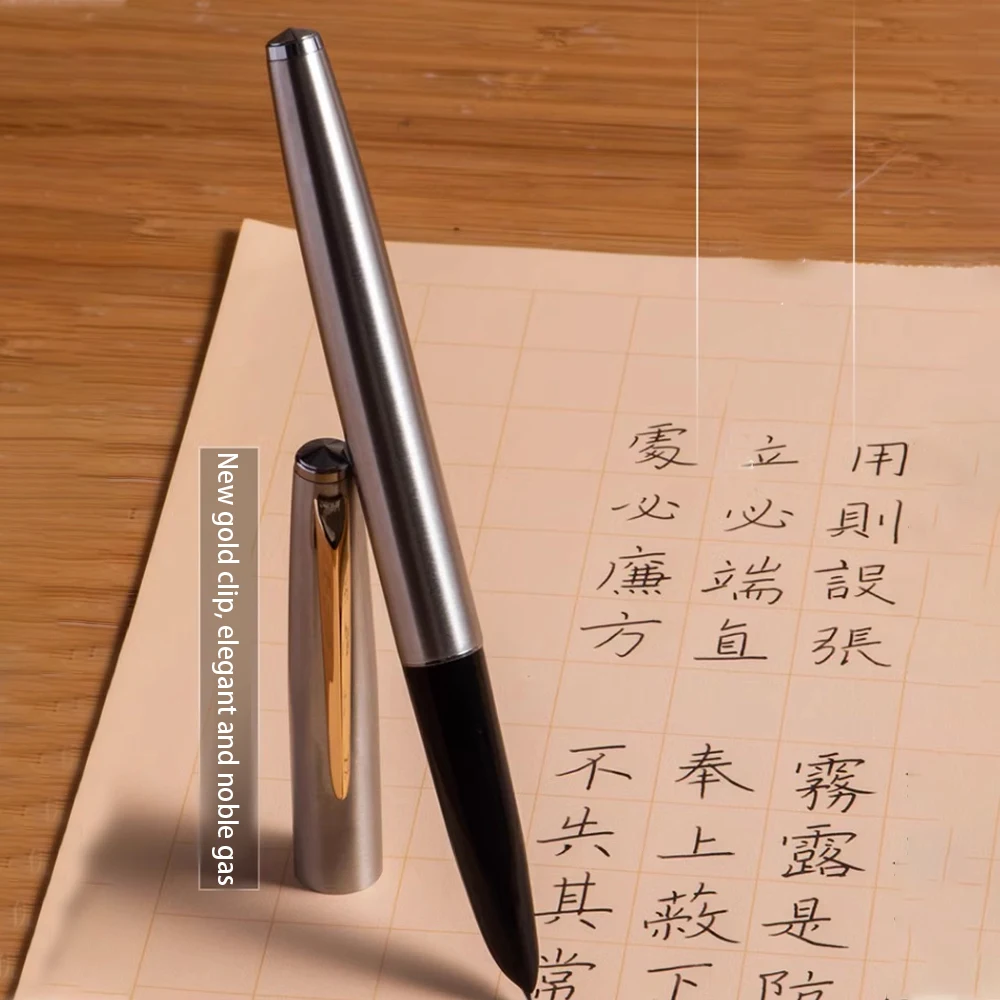 New gold clip, elegant and noble gas
用則設張 霧露是防
立必端直 奉上蔽下
處必廉方 不失其常